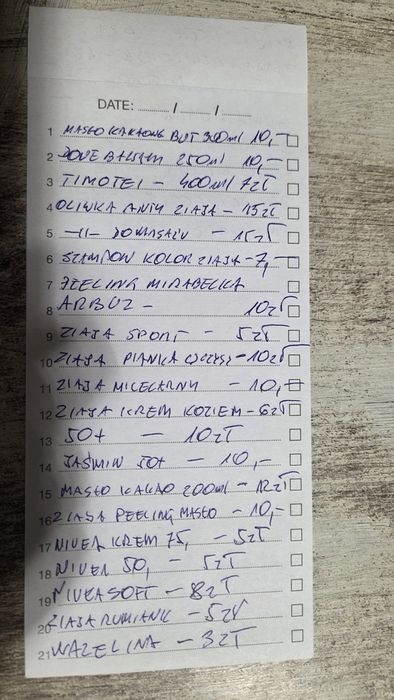 DATE: ....... / ....... / .......
1 MASŁO KAKAOWE BUT 300ml 10,-
2 DOVE BALSAM 250ml 10,-
3 TIMOTEI - 400ml 7zł
4 OLIWKA ANTY ZIAJA - 15zł
5 -||- DO MASAŻU - 15zł
6 SZAMPON KOLOR ZIAJA - 7,-
7 PEELING MIRABELKA
8 ARBUZ - 10zł
9 ZIAJA SPORT - 5zł
10 ZIAJA PIANKA OCZYSZ - 10zł
11 ZIAJA MICELARNY - 10,-
12 ZIAJA KREM KOZIEM - 6zł
13 50+ - 10zł
14 JAŚMIN 50+ - 10,-
15 MASŁO KAKAO 200ml - 12zł
16 ZIAJA PEELING MASŁO - 10,-
17 NIVEA KREM 75, - 5zł
18 NIVEA 50, - 5zł
19 NIVEA SOFT - 8zł
20 ZIAJA RUMIANK - 5zł
21 WAZELINA - 3zł